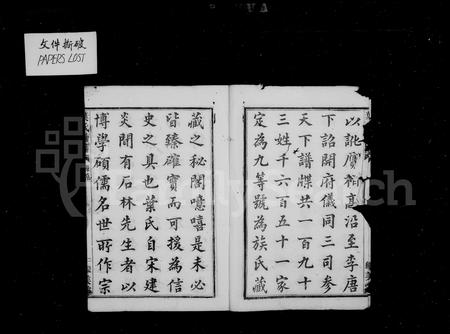 文件撕破
PAPERS LOST
以訛贗福臺沿至李唐
下詔開府儀同三司參
天下譜牒共一百九十
三姓千六百五十一家
定為九等號為族氏藏
藏之秘閣噫嘻是未必
皆臻確實而可援為信
史之具也葉氏自宋建
炎間有石林先生者以
博學碩儒名世所作宗
FamilySearch